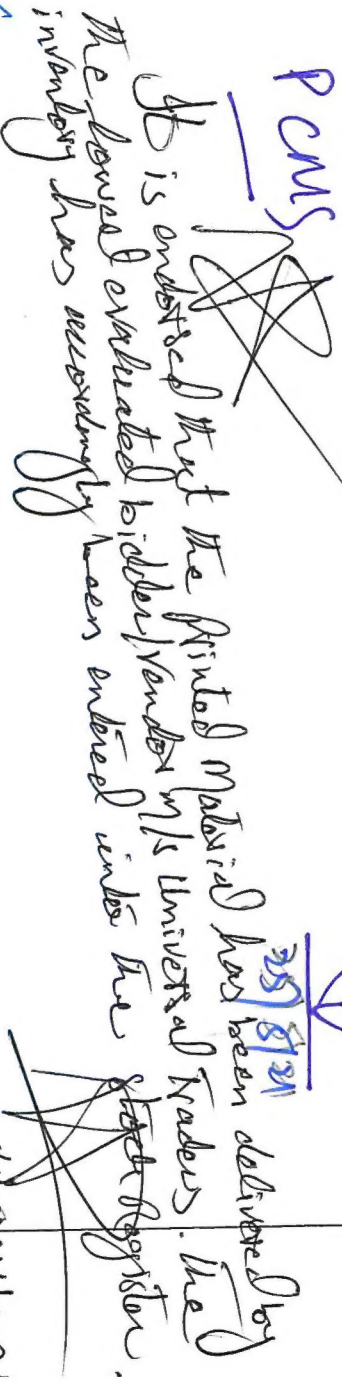 PCMS
25/8/21
It is endorsed that the Printed Material has been delivered by
the lowest evaluated bidder/vendor M/s Universal Traders. The
inventory has accordingly been entered into the stock register.